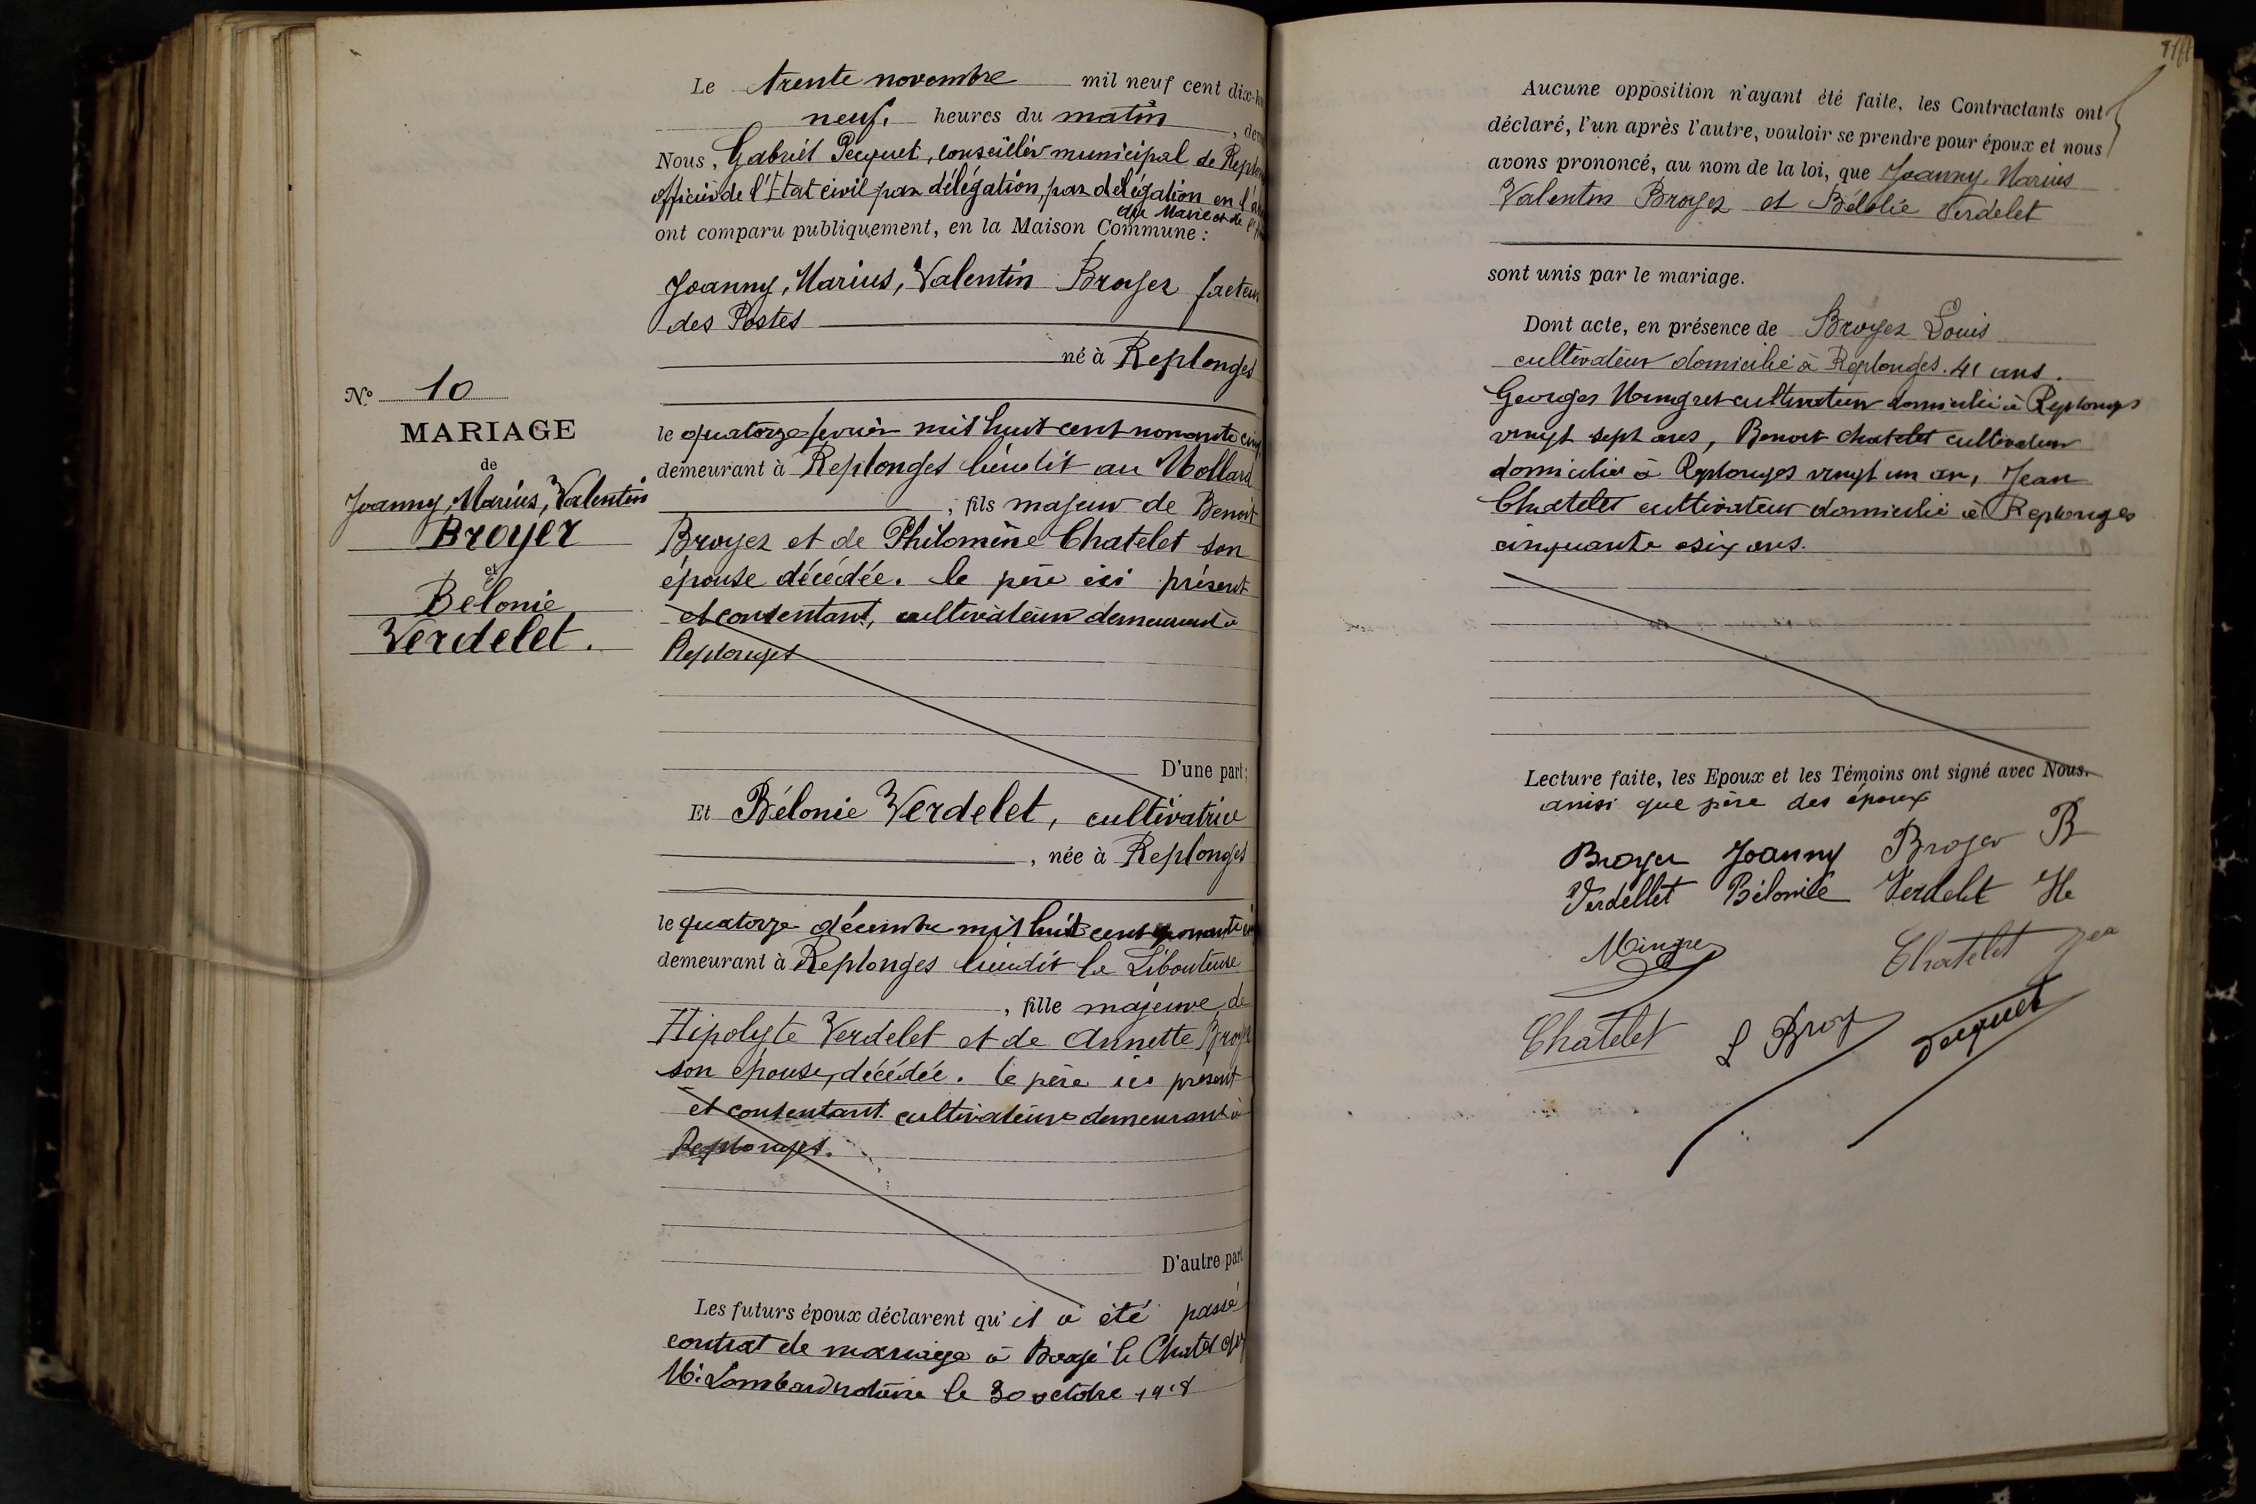 Le trente novembre mil neuf cent dix-
neuf heures du matin,
Nous, Gabriel Pecquet, conseiller municipal de
officier de l'Etat civil par délégation, par délégation en
du Maire et de
ont comparu publiquement, en la Maison Commune :
Joanny, Marius, Valentin Broyer facteur
des Postes
né à Replonges
N° 10
MARIAGE
de
Joanny, Marius, Valentin
Broyer
et
Bélonie
Verdelet.
le quatorze mil huit cent nonante
demeurant à Replonges lieudit au Mollard
, fils majeur de Benoit
Broyer et de Philomène Chatelet son
épouse décédée. le père ici présent
et consentant, cultivateur demeurant à
Replonges
D'une part ;
Et Bélonie Verdelet, cultivatrice
, née à Replonges
le quatorze décembre mil huit cent nonante
demeurant à Replonges lieudit la
, fille majeure de
Hipolyte Verdelet et de Annette
son épouse, décédée. le père ici présent
et consentant cultivateur demeurant à
Replonges.
D'autre part
Les futurs époux déclarent qu'il a été passé
contrat de mariage à Bagé le Chatel
Lombard notaire le 30 octobre 1918
Aucune opposition n'ayant été faite, les Contractants ont
déclaré, l'un après l'autre, vouloir se prendre pour époux et nous
avons prononcé, au nom de la loi, que Joanny, Marius
Valentin Broyer et Bélolie Verdelet
sont unis par le mariage.
Dont acte, en présence de Broyer Louis
cultivateur domicilié à Replonges. 41 ans.
Georges Mingret cultivateur domicilié à Replonges
vingt sept ans, Benoit Chatelet cultivateur
domicilié à Replonges vingt un an, Jean
Chatelet cultivateur domicilié à Replonges
cinquante six ans.
Lecture faite, les Epoux et les Témoins ont signé avec Nous.
ainsi que père des époux
Broyer Joanny Broyer B
Verdellet Bélonie Verdelet He
Chatelet
Chatelet L Broy Pecquet